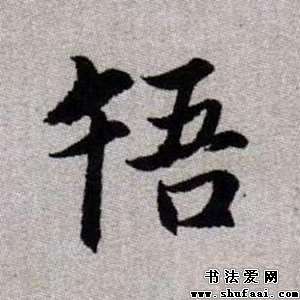 牾
书法爱网
www.shufaai.com